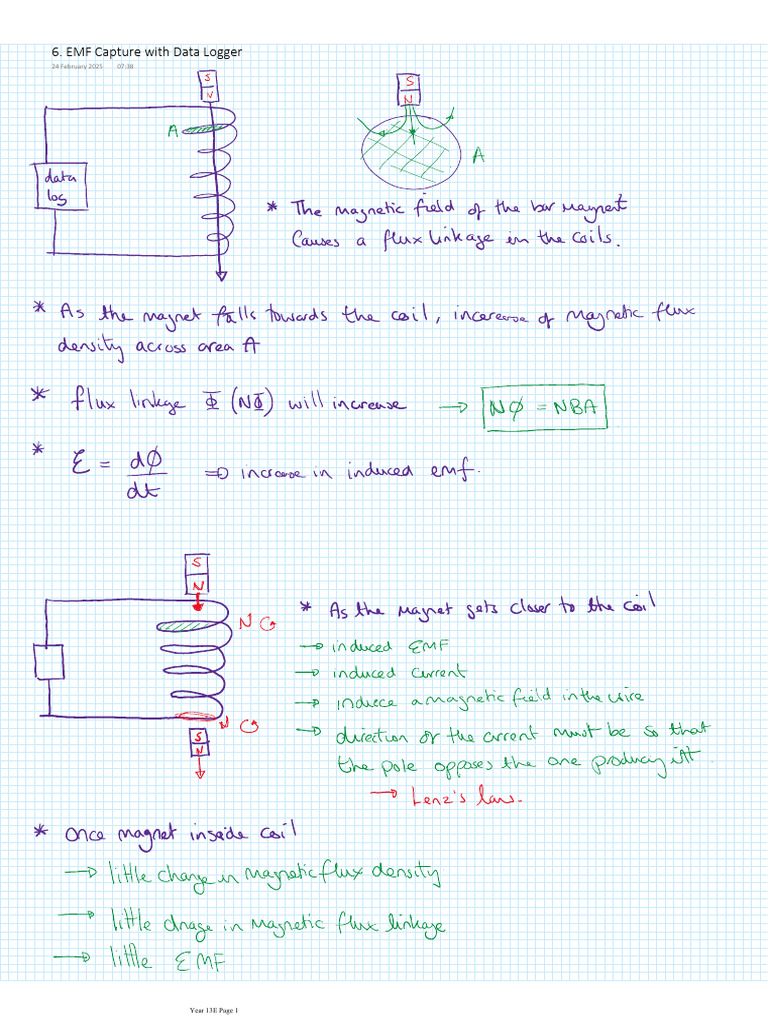 6. EMF Capture with Data Logger
24 February 2025 07:38
S
N
S
N
A
A
data
log
* The magnetic field of the bar magnet
causes a flux linkage in the coils.
* As the magnet falls towards the coil, increase of magnetic flux
density across area A
* flux linkge Φ (NΦ) will increase → NΦ = NBA
* ε = dΦ/dt ⇒ increase in induced emf.
S
N
N
* As the magnet gets closer to the coil
→ induced EMF
→ induced current
→ induce a magnetic field in the wire
N
S
N
→ direction of the current must be so that
the pole opposes the one producing it
→ Lenz's law.
* Once magnet inside coil
→ little change in magnetic flux density
→ little chnage in magnetic flux linkage
→ little EMF
Year 13E Page 1